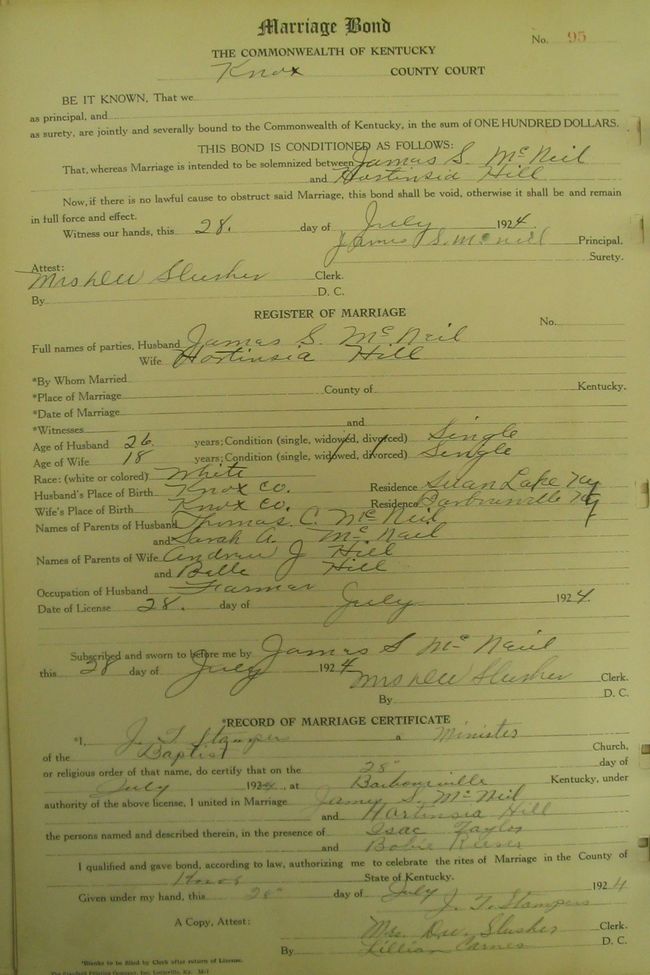 Marriage Bond
No. 95
THE COMMONWEALTH OF KENTUCKY
Knox COUNTY COURT
BE IT KNOWN, That we
as principal, and
as surety, are jointly and severally bound to the Commonwealth of Kentucky, in the sum of ONE HUNDRED DOLLARS.
THIS BOND IS CONDITIONED AS FOLLOWS:
That, whereas Marriage is intended to be solemnized between James S. McNeil
and Hortinsia Hill
Now, if there is no lawful cause to obstruct said Marriage, this bond shall be void, otherwise it shall be and remain
in full force and effect.
Witness our hands, this 28. day of July 1924.
James S. McNeil Principal.
Surety.
Attest:
Mrs D W Slusher Clerk.
By D. C.
REGISTER OF MARRIAGE
No.
Full names of parties, Husband James S. McNeil
Wife Hortinsia Hill
*By Whom Married
*Place of Marriage County of Kentucky.
*Date of Marriage
*Witnesses and
Age of Husband 26. years; Condition (single, widowed, divorced) Single
Age of Wife 18 years; Condition (single, widowed, divorced) Single
Race: (white or colored) White
Husband's Place of Birth Knox Co. Residence Swan Lake Ky
Wife's Place of Birth Knox Co. Residence Barbourville Ky
Names of Parents of Husband Thomas C. McNeil
and Sarah A. McNeil
Names of Parents of Wife Andrew J Hill
and Belle Hill
Occupation of Husband Farmer
Date of License 28. day of July 1924.
Subscribed and sworn to before me by James S McNeil
this 28 day of July 1924
Mrs D W Slusher Clerk.
By D. C.
*RECORD OF MARRIAGE CERTIFICATE
*I, J. T. Stampers a Minister
of the Baptist Church,
or religious order of that name, do certify that on the 28" day of
July 1924, at Barbourville Kentucky, under
authority of the above license, I united in Marriage James S. McNeil
and Hartinsia Hill
the persons named and described therein, in the presence of Isac Taylor
and Bobie
I qualified and gave bond, according to law, authorizing me to celebrate the rites of Marriage in the County of
Knox State of Kentucky.
Given under my hand, this 28" day of July 1924
J. T. Stampers
A Copy, Attest: Mrs. D. W. Slusher Clerk.
By Lillian Carnes D. C.
*Blanks to be filled by Clerk after return of License.
The Bradford Printing Company, Inc. Louisville, Ky.